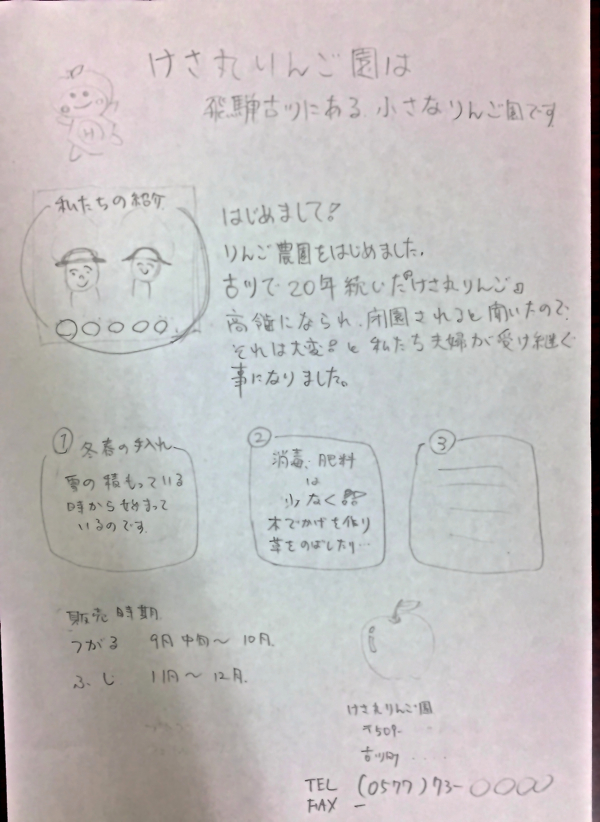 けさ丸りんご園は
飛騨古川にある 小さなりんご園です
H
私たちの紹介
○○○○○
はじめまして!
りんご農園をはじめました。
古川で20年続いた『けさ丸りんご』
高齢になられ、閉園されると聞いたので、
それは大変!と私たち夫婦が受け継ぐ
事になりました。
① 冬春の手入れ
雪の積もっている
時から始まって
いるのです
② 消毒、肥料
は
少なく
木でかげを作り
草をのばしたり…
③
販売時期
つがる 9月中旬〜10月
ふじ 11月〜12月
けさ丸りんご園
〒509-
古川町 ....
TEL (0577)73-○○○○
FAX -